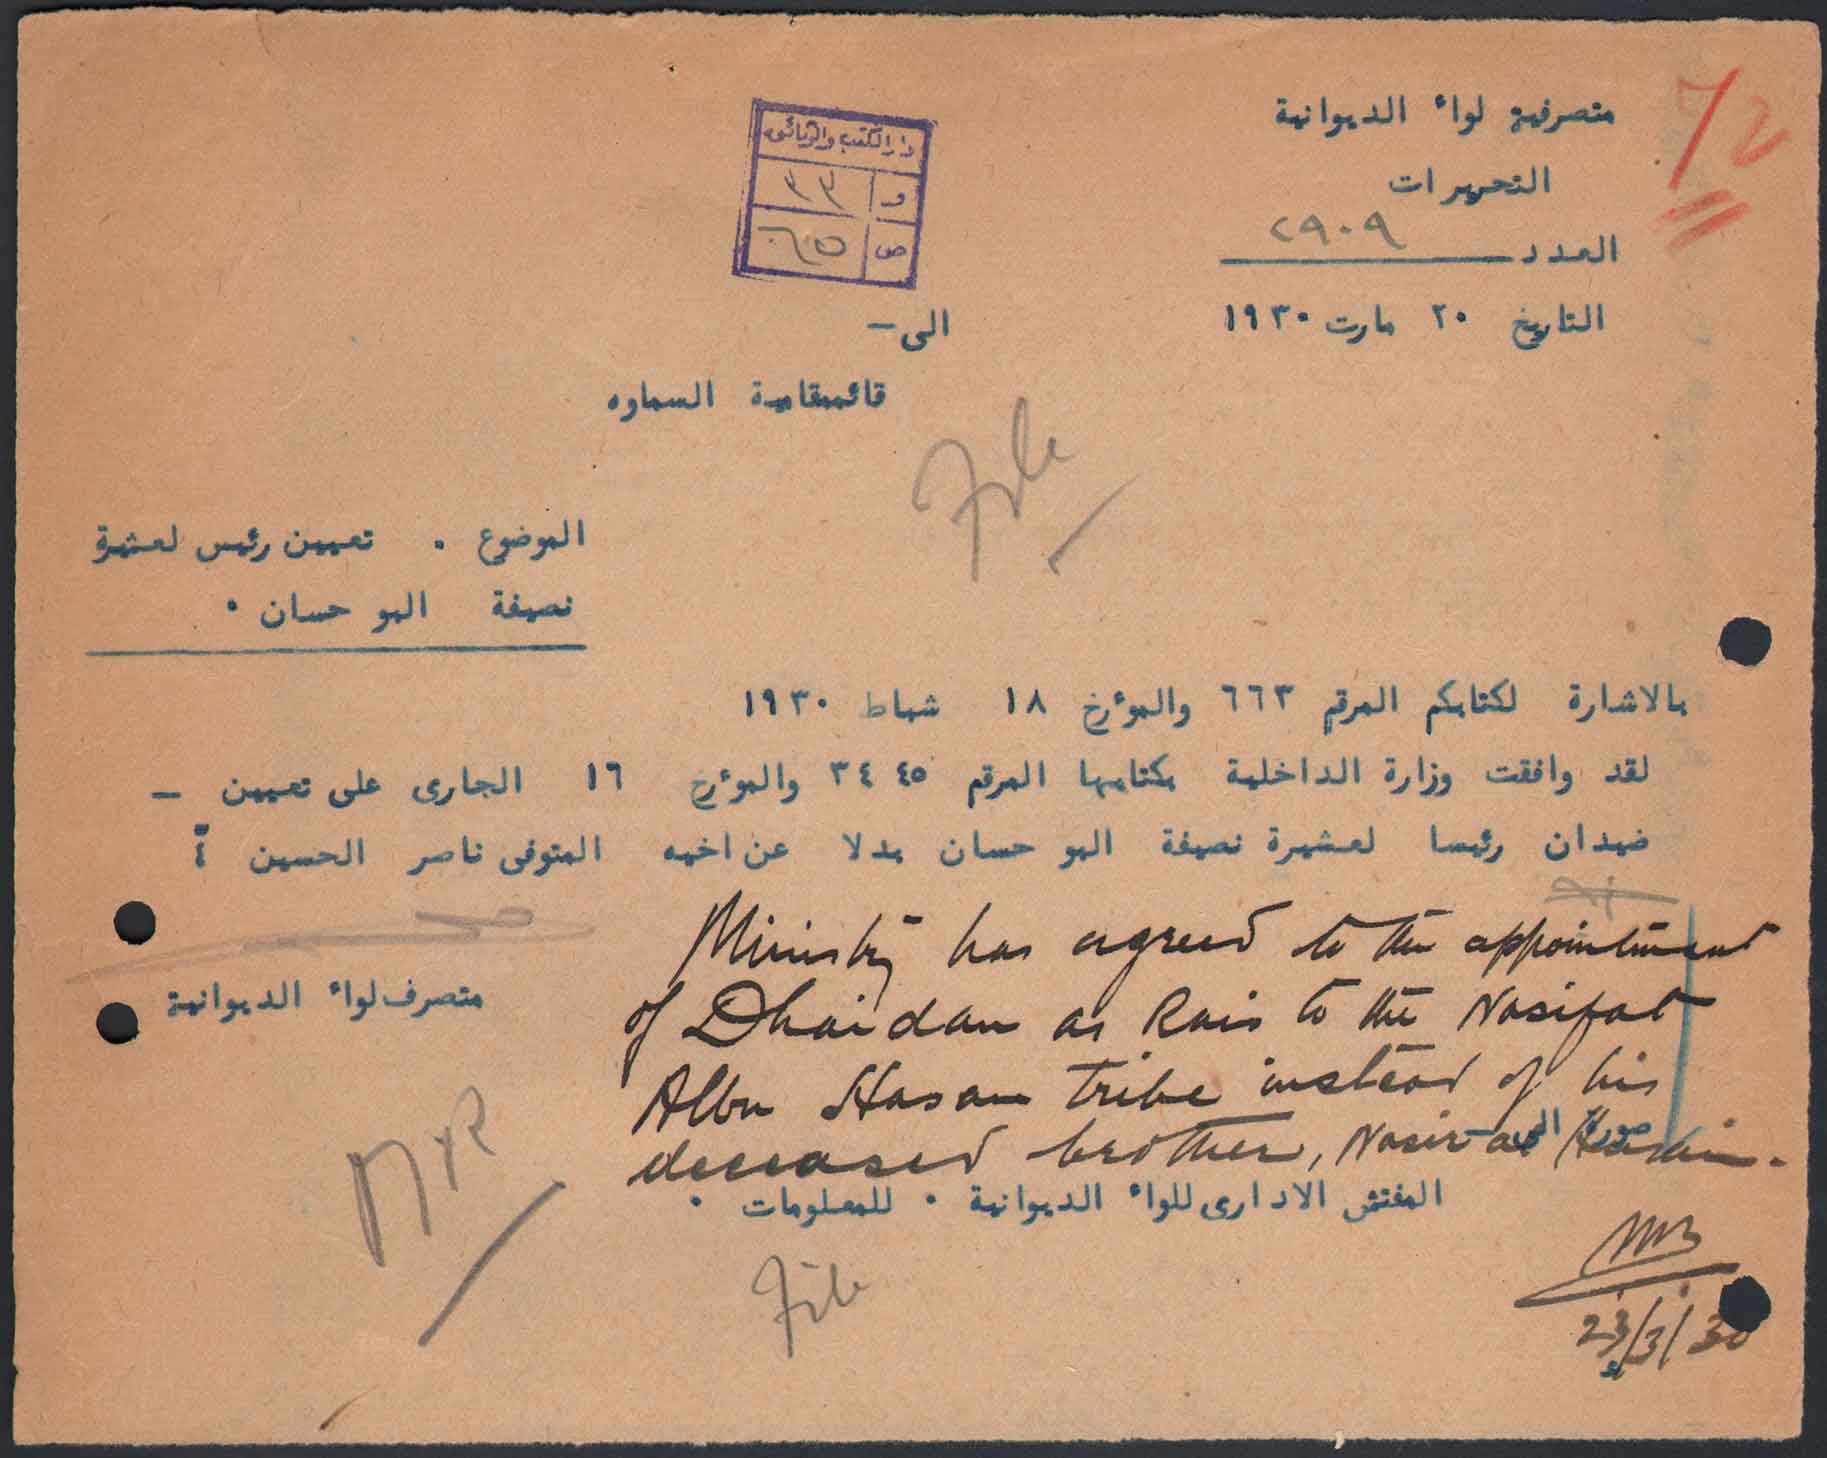 متصرفية لواء الديوانية
72
التحريرات
العدد ٢٩٠٩
التاريخ ٢٠ مارت ١٩٣٠
دار الكتب والوثائق
و ٣٣
ص ٦٥
الى —
قائممقامية السماوه
File
الموضوع . تعيين رئيس لعشيرة
نصيفة البو حسان .
بالاشارة لكتابكم المرقم ٦٦٣ والمؤرخ ١٨ شباط ١٩٣٠
لقد وافقت وزارة الداخلية بكتابها المرقم ٣٤٤٥ والمؤرخ ١٦ الجارى على تعيين —
ضيدان رئيسا لعشيرة نصيفة البو حسان بدلا عن اخيه المتوفى ناصر الحسين
متصرف لواء الديوانية
Ministry has agreed to the appointment
of Dhaidan as Rais to the Nasifat
Albu Hasan tribe instead of his
deceased brother, Nasir al Hussain.
صورة الى —
المفتش الادارى للواء الديوانية . للمعلومات .
File
23/3/30